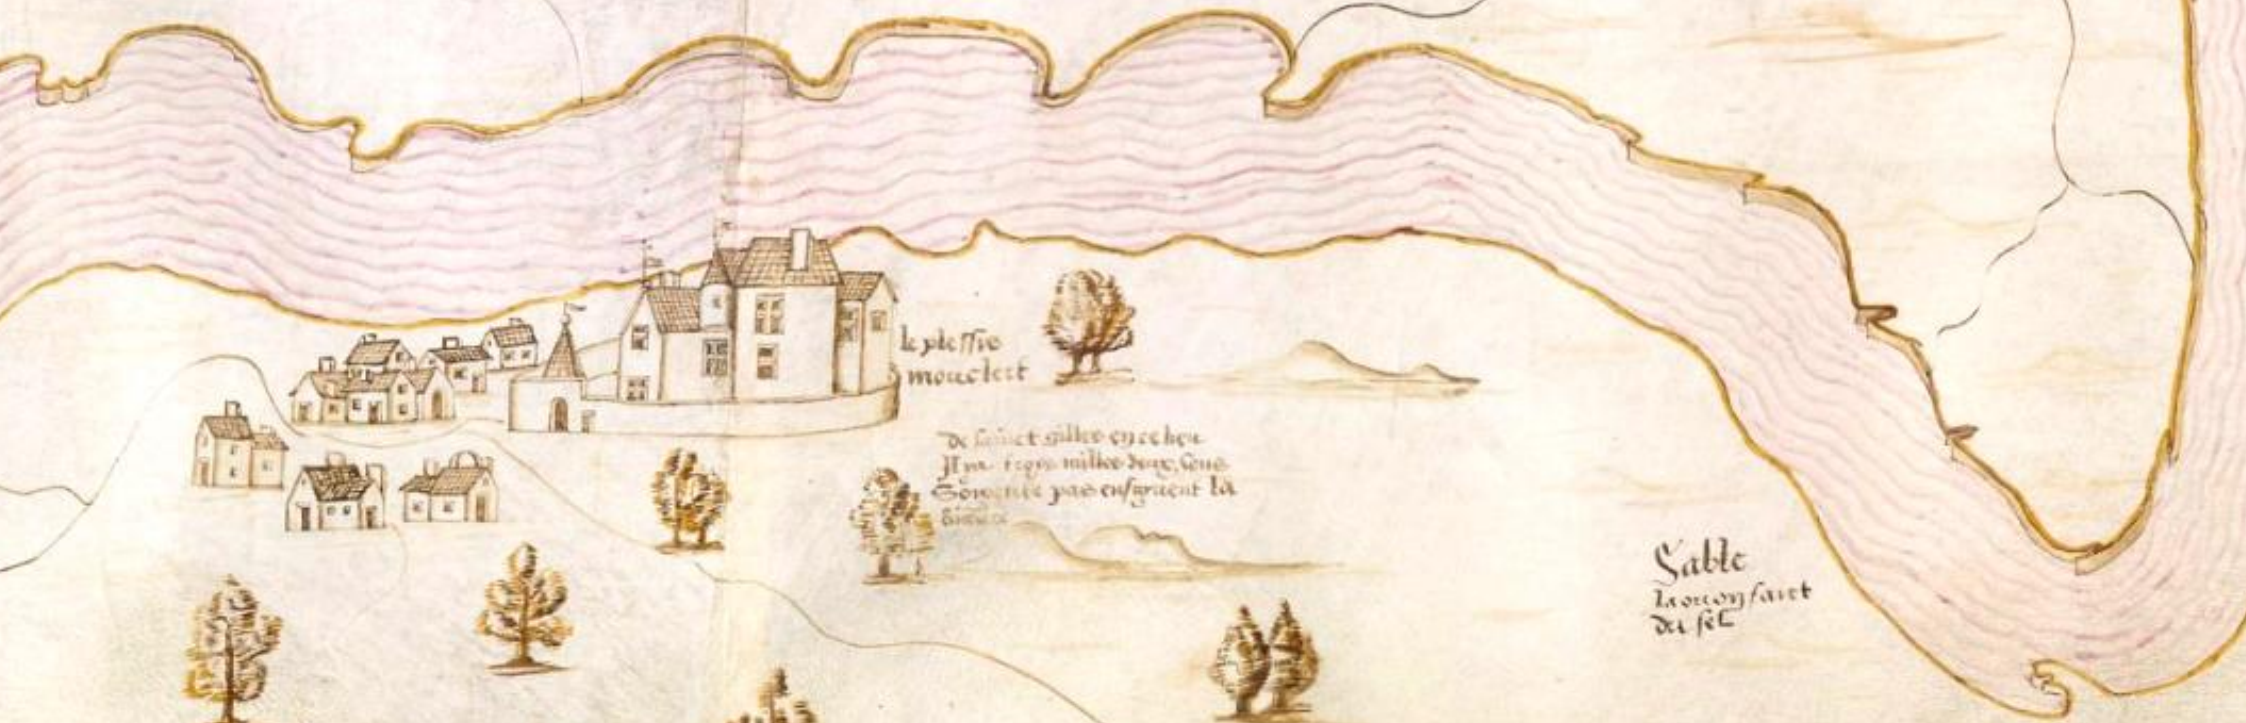 le plessis
mouclert
de sainct gilles en ce lieu
Il ya troys milles deux Cens
pas ensuyuent la
Sable
la ou on faict
du sel